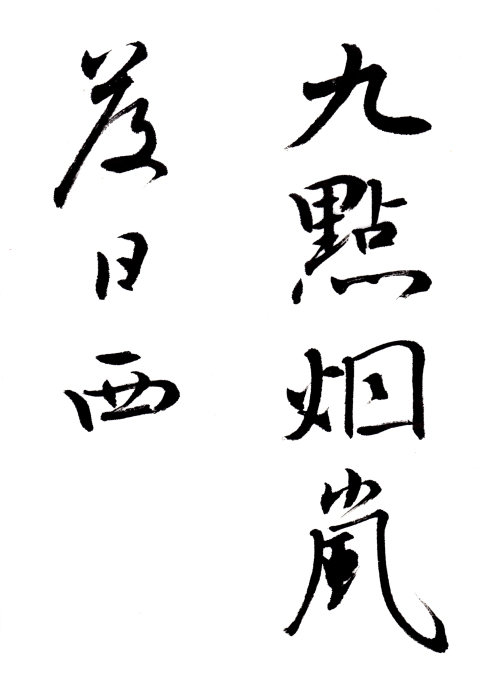 九點烟嵐
日西